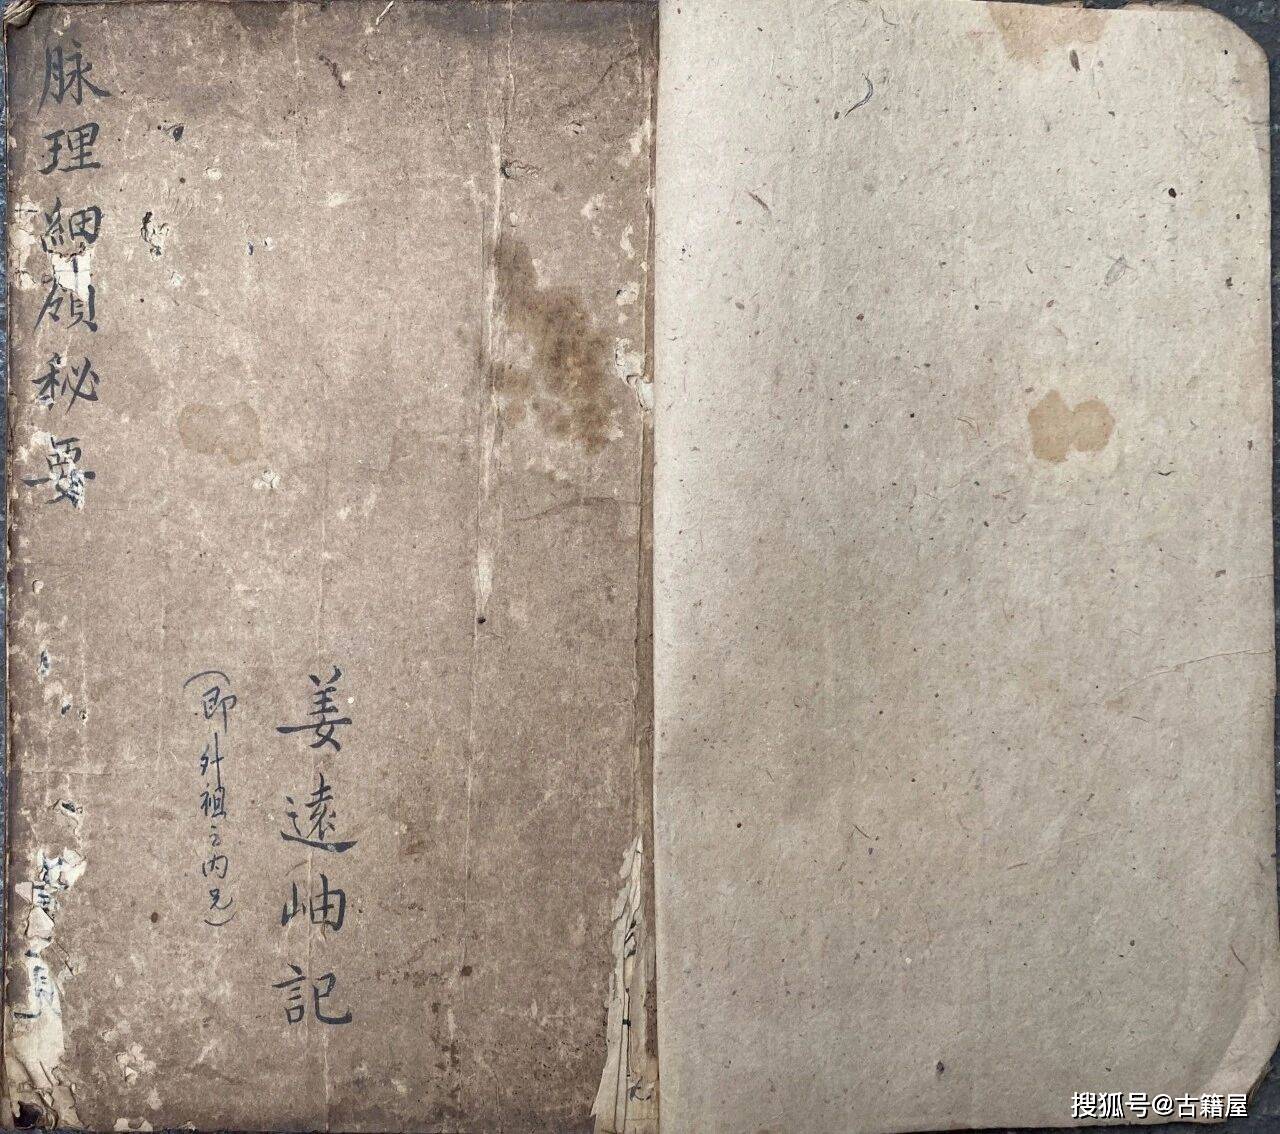 姜遠岫記
(即外祖之内兄)
脉理細領秘要
搜狐号@古籍屋